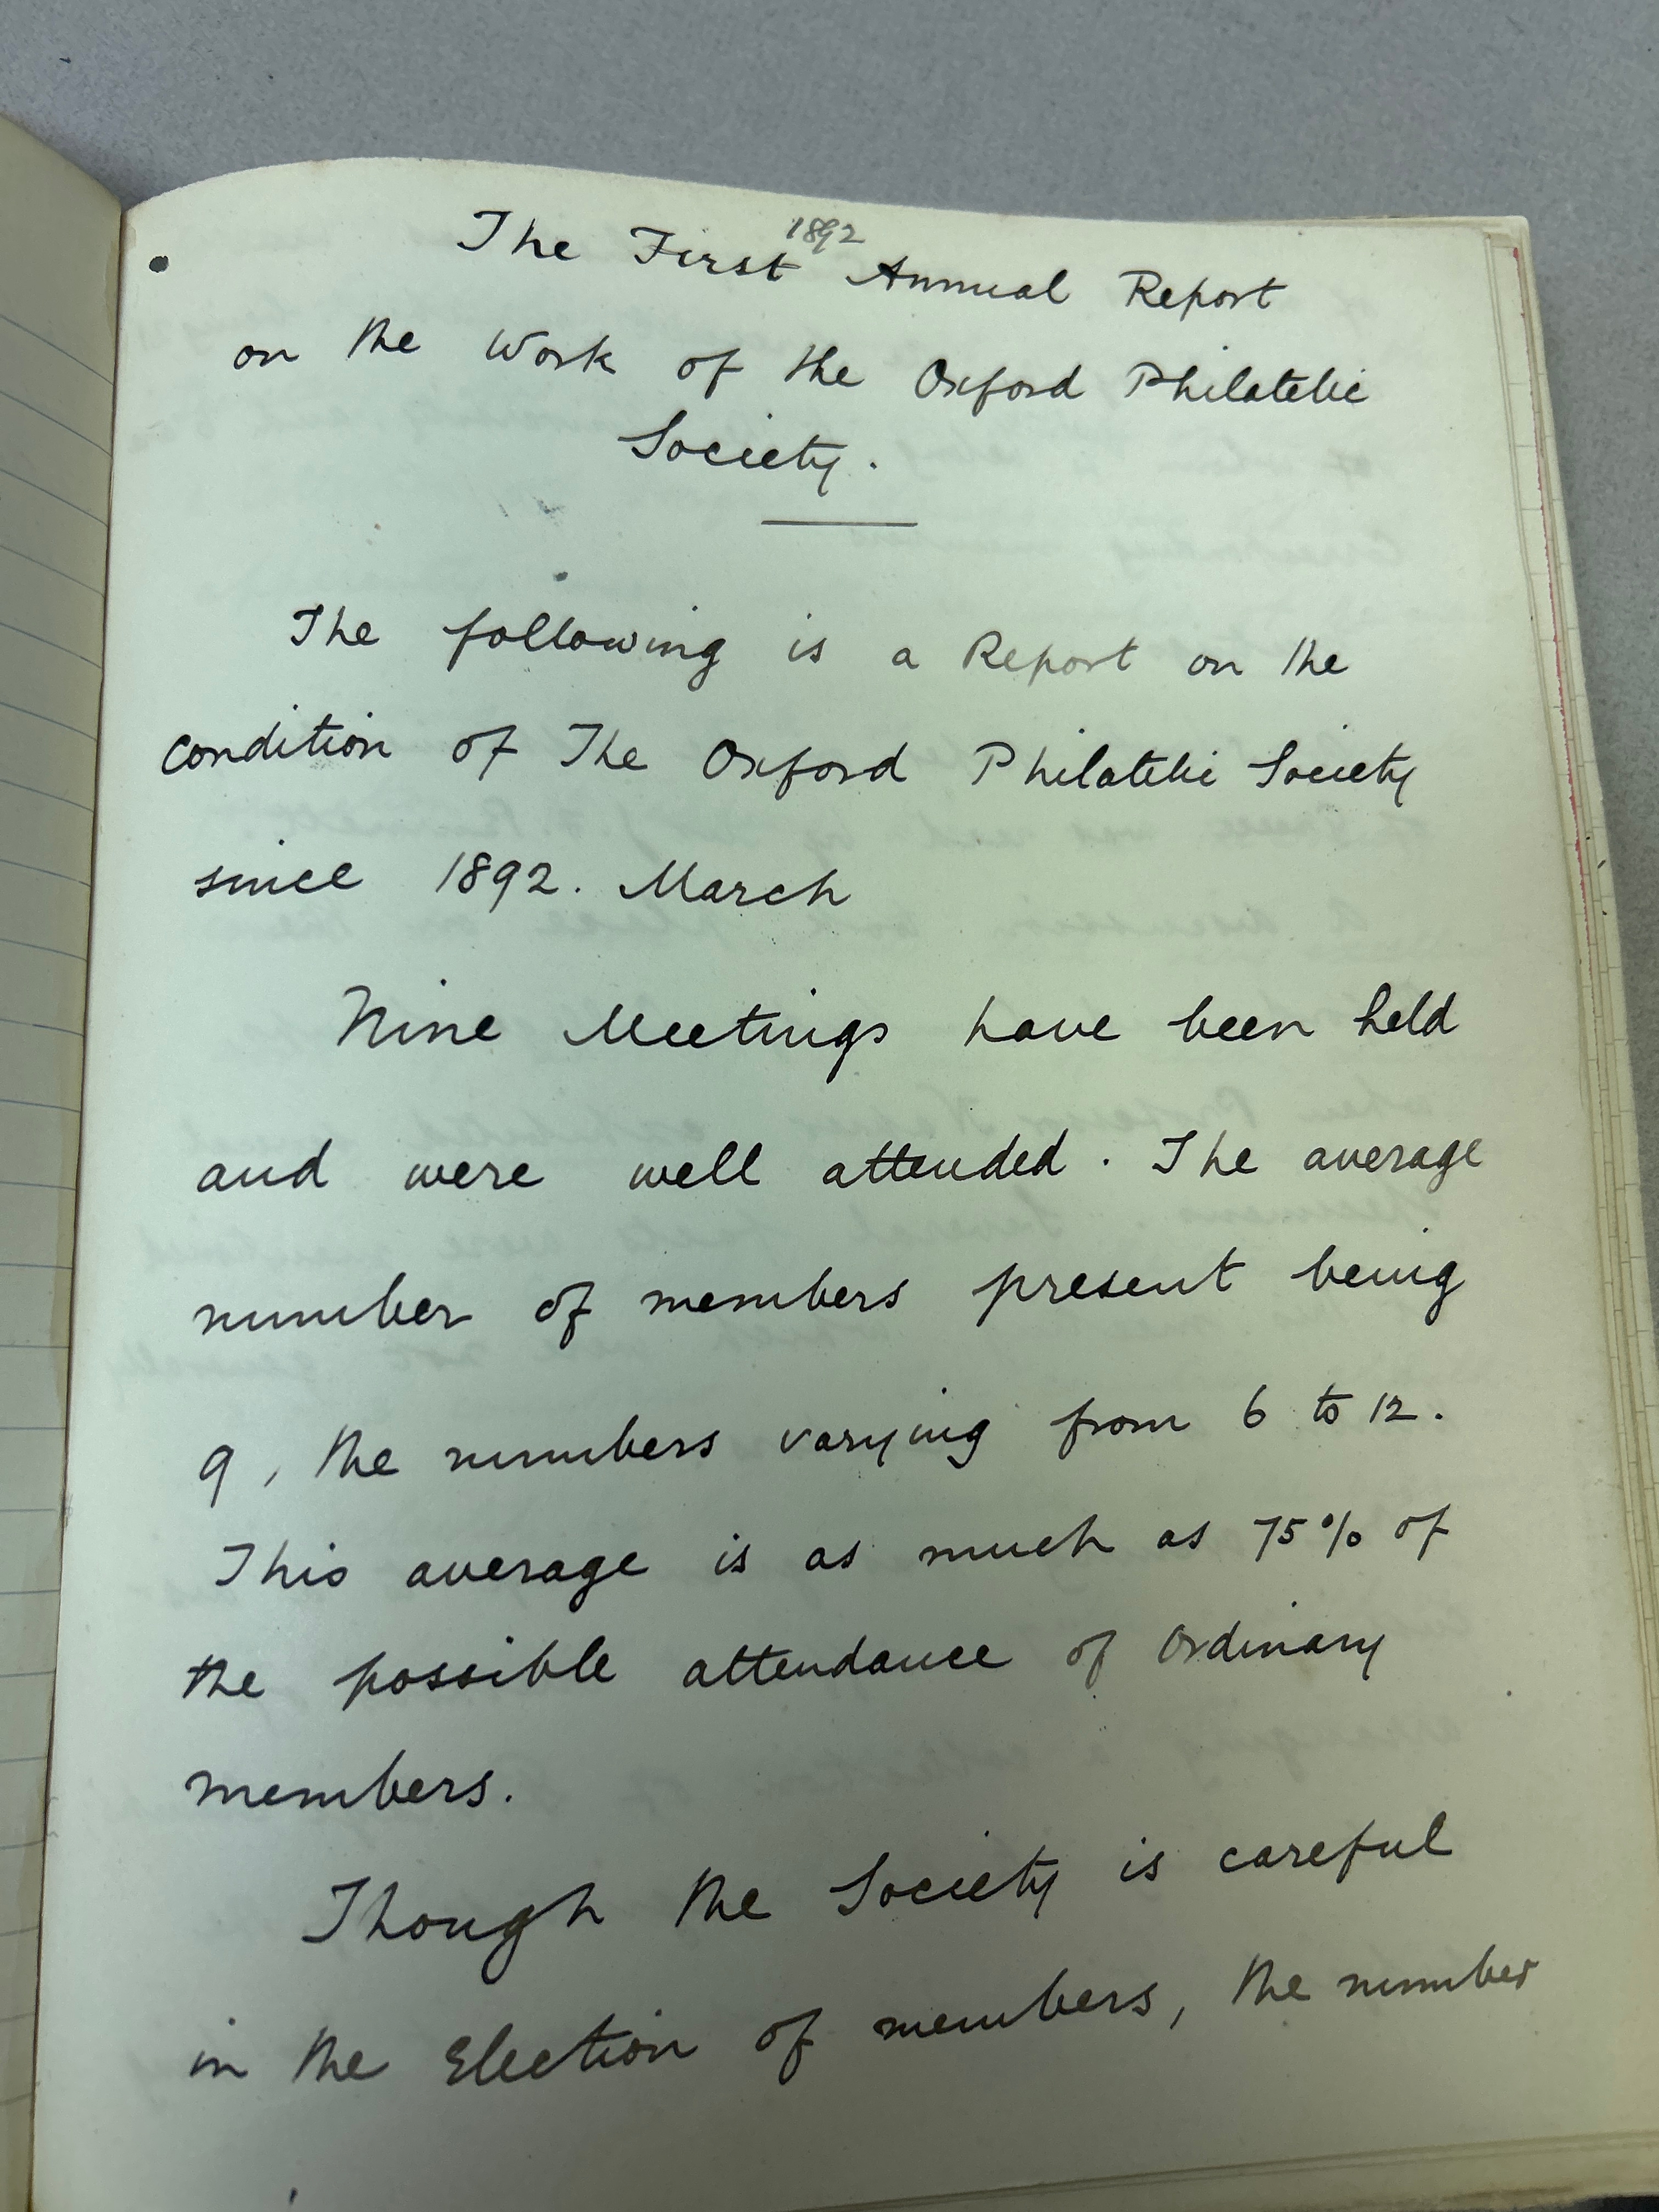 1892
The First Annual Report
on the Work of the Oxford Philatelic
Society.
The following is a Report on the
condition of The Oxford Philatelic Society
since 1892. March
Nine Meetings have been held
and were well attended. The average
number of members present being
9, the numbers varying from 6 to 12.
This average is as much as 75% of
the possible attendance of Ordinary
members.
Though the Society is careful
in the Election of members, the number